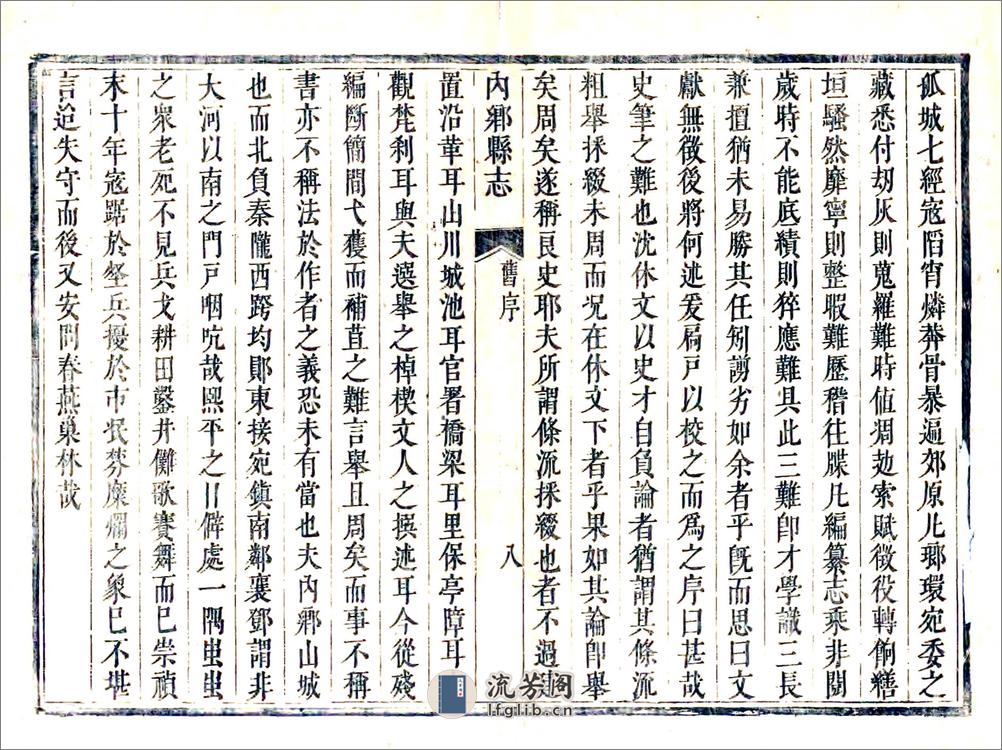 孤城七經寇蹈宵燐莽骨暴遍郊原凡瑯環宛委之
藏悉付劫灰則蒐羅難時值凋攰索賦徵役轉餉繕
垣騷然靡寧則整暇難歷稽往牒凡編纂志乘非閱
歲時不能底績則猝應難具此三難卽才學識三長
兼擅猶未易勝其任矧謭劣如余者乎旣而思曰文
獻無徵後將何述爰扃戸以校之而爲之序曰甚哉
史筆之難也沈休文以史才自負論者猶謂其條流
粗舉採綴未周而况在休文下者乎果如其論卽舉
矣周矣遂稱良史耶夫所謂條流採綴也者不過
內鄉縣志
舊序
八
置沿革耳山川城池耳官署橋梁耳里保亭障耳
觀梵利耳與夫選舉之棹楔文人之撰述耳今從殘
編斷簡間弋獲而補苴之難言舉且周矣而事不稱
書亦不稱法於作者之義恐未有當也夫內鄉山城
也而北負秦隴西跨均鄖東接宛鎮南鄰襄鄧謂非
大河以南之門戸咽吭哉熙平之日僻處一隅蚩蚩
之衆老死不見兵戈耕田鑿井儺歌賽舞而已崇禎
末十年寇踞於垒兵擾於市泯棼糜爛之象已不堪
言迨失守而後又安問春燕巢林哉
流芳阁
lfglib.cn